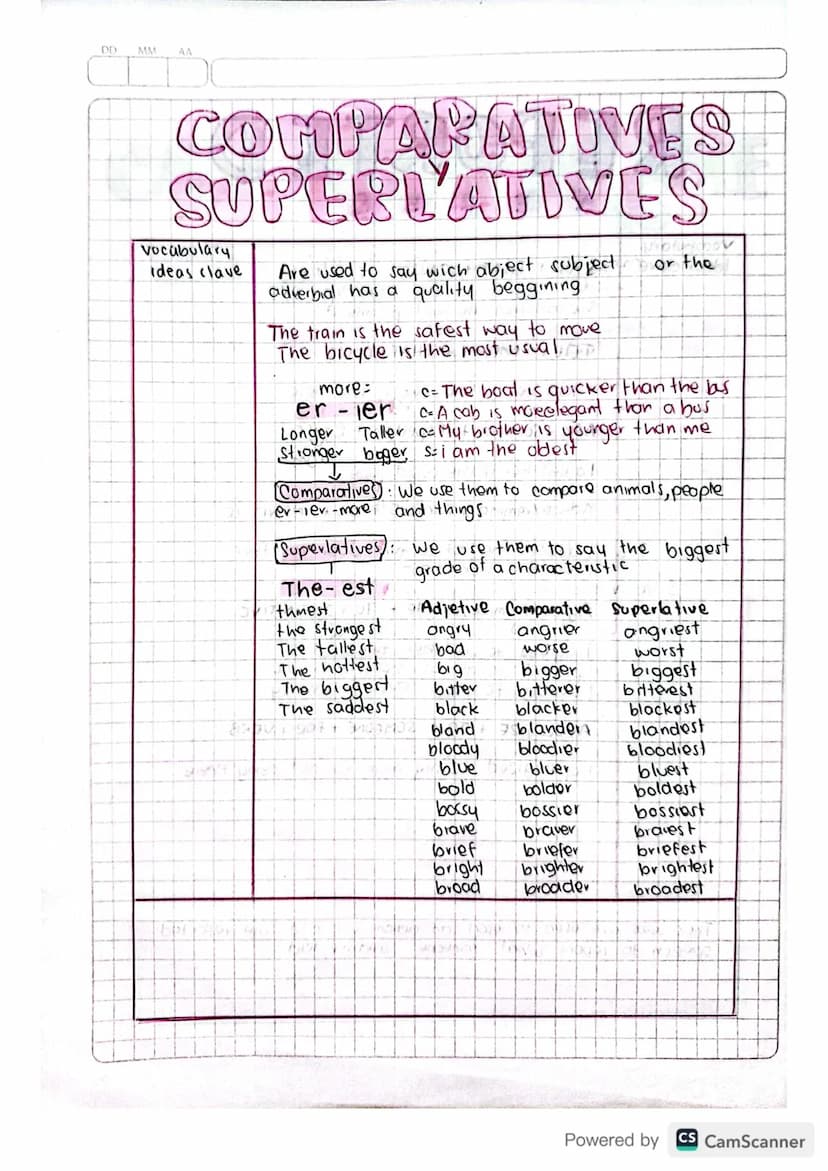 DD MM AA
COMPARATIVES
Y
SUPERLATIVES
vocabulary
ideas clave
Are used to say wich object subject or the
adverbial has a quality beggining
The train is the safest way to move
The bicycle is the most usual
more:
er - ier
Longer Taller
Stronger bigger
c= The boat is quicker than the bus
c= A cab is morelegant than a bus
c= My brother is younger than me
s= i am the oldest
Comparatives: We use them to compare animals, people
er-ier-more and things
Superlatives: We use them to say the biggest
grade of a characteristic
The- est
the strongest
The tallest
The hottest
The biggest
The saddest
Adjetive Comparative Superlative
angry angrier angriest
bad worse worst
big bigger biggest
bitter bitterer bitterest
black blacker blackest
bland blander blandest
bloody bloodier bloodiest
blue bluer bluest
bold bolder boldest
bossy bossier bossiest
brave braver bravest
brief briefer briefest
bright brighter brightest
broad broader broadest
Powered by CS CamScanner